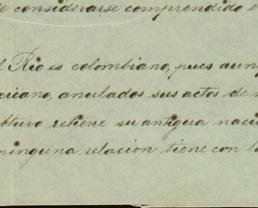 e considerarse comprendido e
l Rio es colombiano, pues aunq
xicano, anulados sus actos de n
obtuvo retiene su antigua naci
ninguna relacion tiene con l